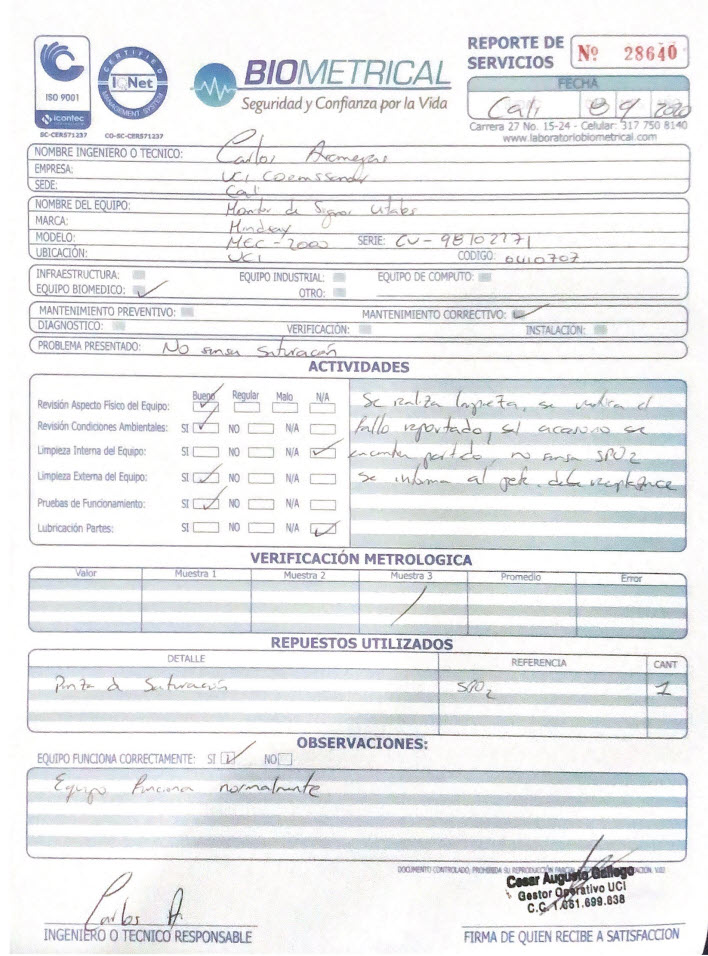 REPORTE DE SERVICIOS Nº 28640
ISO 9001
icontec
SC-CER571237
CERTIFIED
IQNet
MANAGEMENT SYSTEM
CO-SC-CER571237
BIOMETRICAL
Seguridad y Confianza por la Vida
FECHA
Cali 8 9 2020
Carrera 27 No. 15-24 - Celular: 317 750 8140
www.laboratoriobiometrical.com
NOMBRE INGENIERO O TECNICO: Carlos
EMPRESA: UCI
SEDE: Cali
NOMBRE DEL EQUIPO: Monitor de Signos vitales
MARCA: Mindray
MODELO: MEC-2000 SERIE: CV-98102271
UBICACIÓN: UCI CODIGO: 0410707
INFRAESTRUCTURA: EQUIPO INDUSTRIAL: EQUIPO DE COMPUTO:
EQUIPO BIOMEDICO: OTRO:
MANTENIMIENTO PREVENTIVO: MANTENIMIENTO CORRECTIVO:
DIAGNOSTICO: VERIFICACIÓN: INSTALACIÓN:
PROBLEMA PRESENTADO: No sensa Saturacón
ACTIVIDADES
Bueno Regular Malo N/A
Revisión Aspecto Físico del Equipo:
Revisión Condiciones Ambientales: SI NO N/A
Limpieza Interna del Equipo: SI NO N/A
Limpieza Externa del Equipo: SI NO N/A
Pruebas de Funcionamiento: SI NO N/A
Lubricación Partes: SI NO N/A
Se realiza limpieza, se verifica el
fallo reportado, el acesorio se
encuentra partido, no sensa SPO2
Se informa al debe
VERIFICACIÓN METROLOGICA
Valor Muestra 1 Muestra 2 Muestra 3 Promedio Error
REPUESTOS UTILIZADOS
DETALLE REFERENCIA CANT
Pinza d Saturación SPO2 1
OBSERVACIONES:
EQUIPO FUNCIONA CORRECTAMENTE: SI NO
Equipo Funciona normalmente
DOCUMENTO CONTROLADO, PROHIBIDA SU REPRODUCCIÓN
Cesar Augusto Gallego
Gestor Operativo UCI
C.C. 1.061.699.838
Carlos A.
INGENIERO O TECNICO RESPONSABLE
FIRMA DE QUIEN RECIBE A SATISFACCION